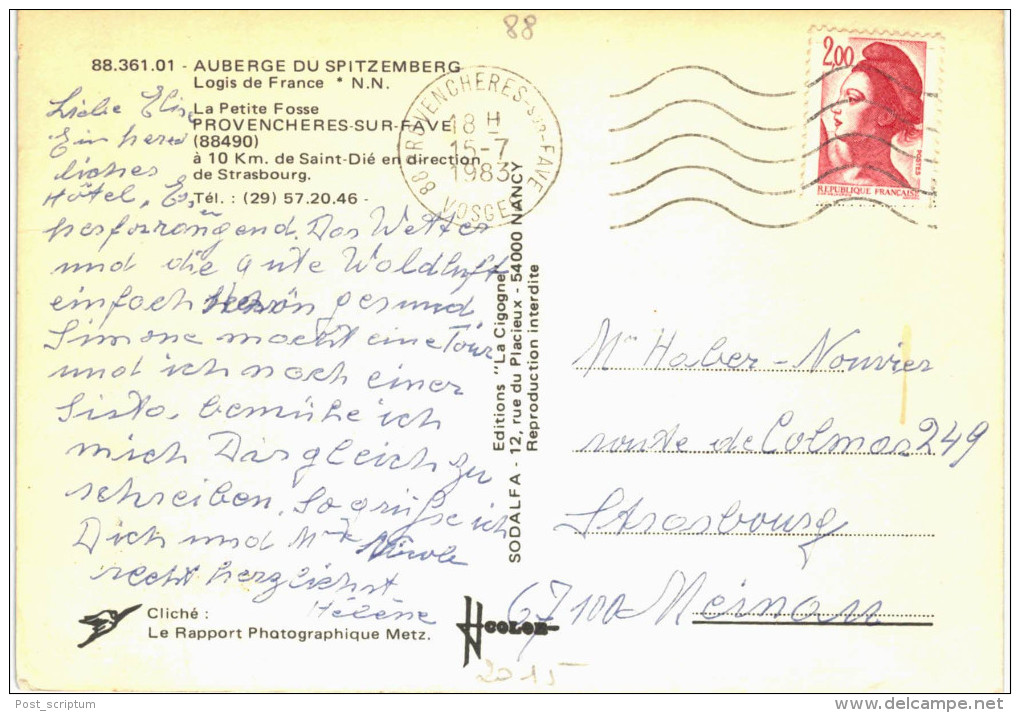 88
88.361.01 - AUBERGE DU SPITZEMBERG
Logis de France * N.N.
La Petite Fosse
PROVENCHERES-SUR-FAVE
(88490)
à 10 Km. de Saint-Dié en direction
de Strasbourg.
Tél. : (29) 57.20.46 -
88 PROVENCHERES-SUR-FAVE
18 H
15-7
1983
VOSGES
2,00
POSTES
REPUBLIQUE FRANÇAISE
Liebe Elise
Ein herr
liches
Hôtel, Es
hervorragend. Das Wetter
und die gute Waldluft
einfach schön gesund
Simone macht eine Tour
und ich nach einer
Siesta, bemühe ich
mich Dir gleich zu
schreiben. So grüße ich
Dich und Mme Nicole
recht herzlichst
Hélène
Editions "La Cigogne"
SODALFA - 12, rue du Placieux - 54000 NANCY
Reproduction interdite
Me Haber-Nouvier
route de Colmar 249
Strasbourg
67100 Meinau
Cliché :
Le Rapport Photographique Metz.
COLOR
2015
Post_scriptum
www.delcampe.net